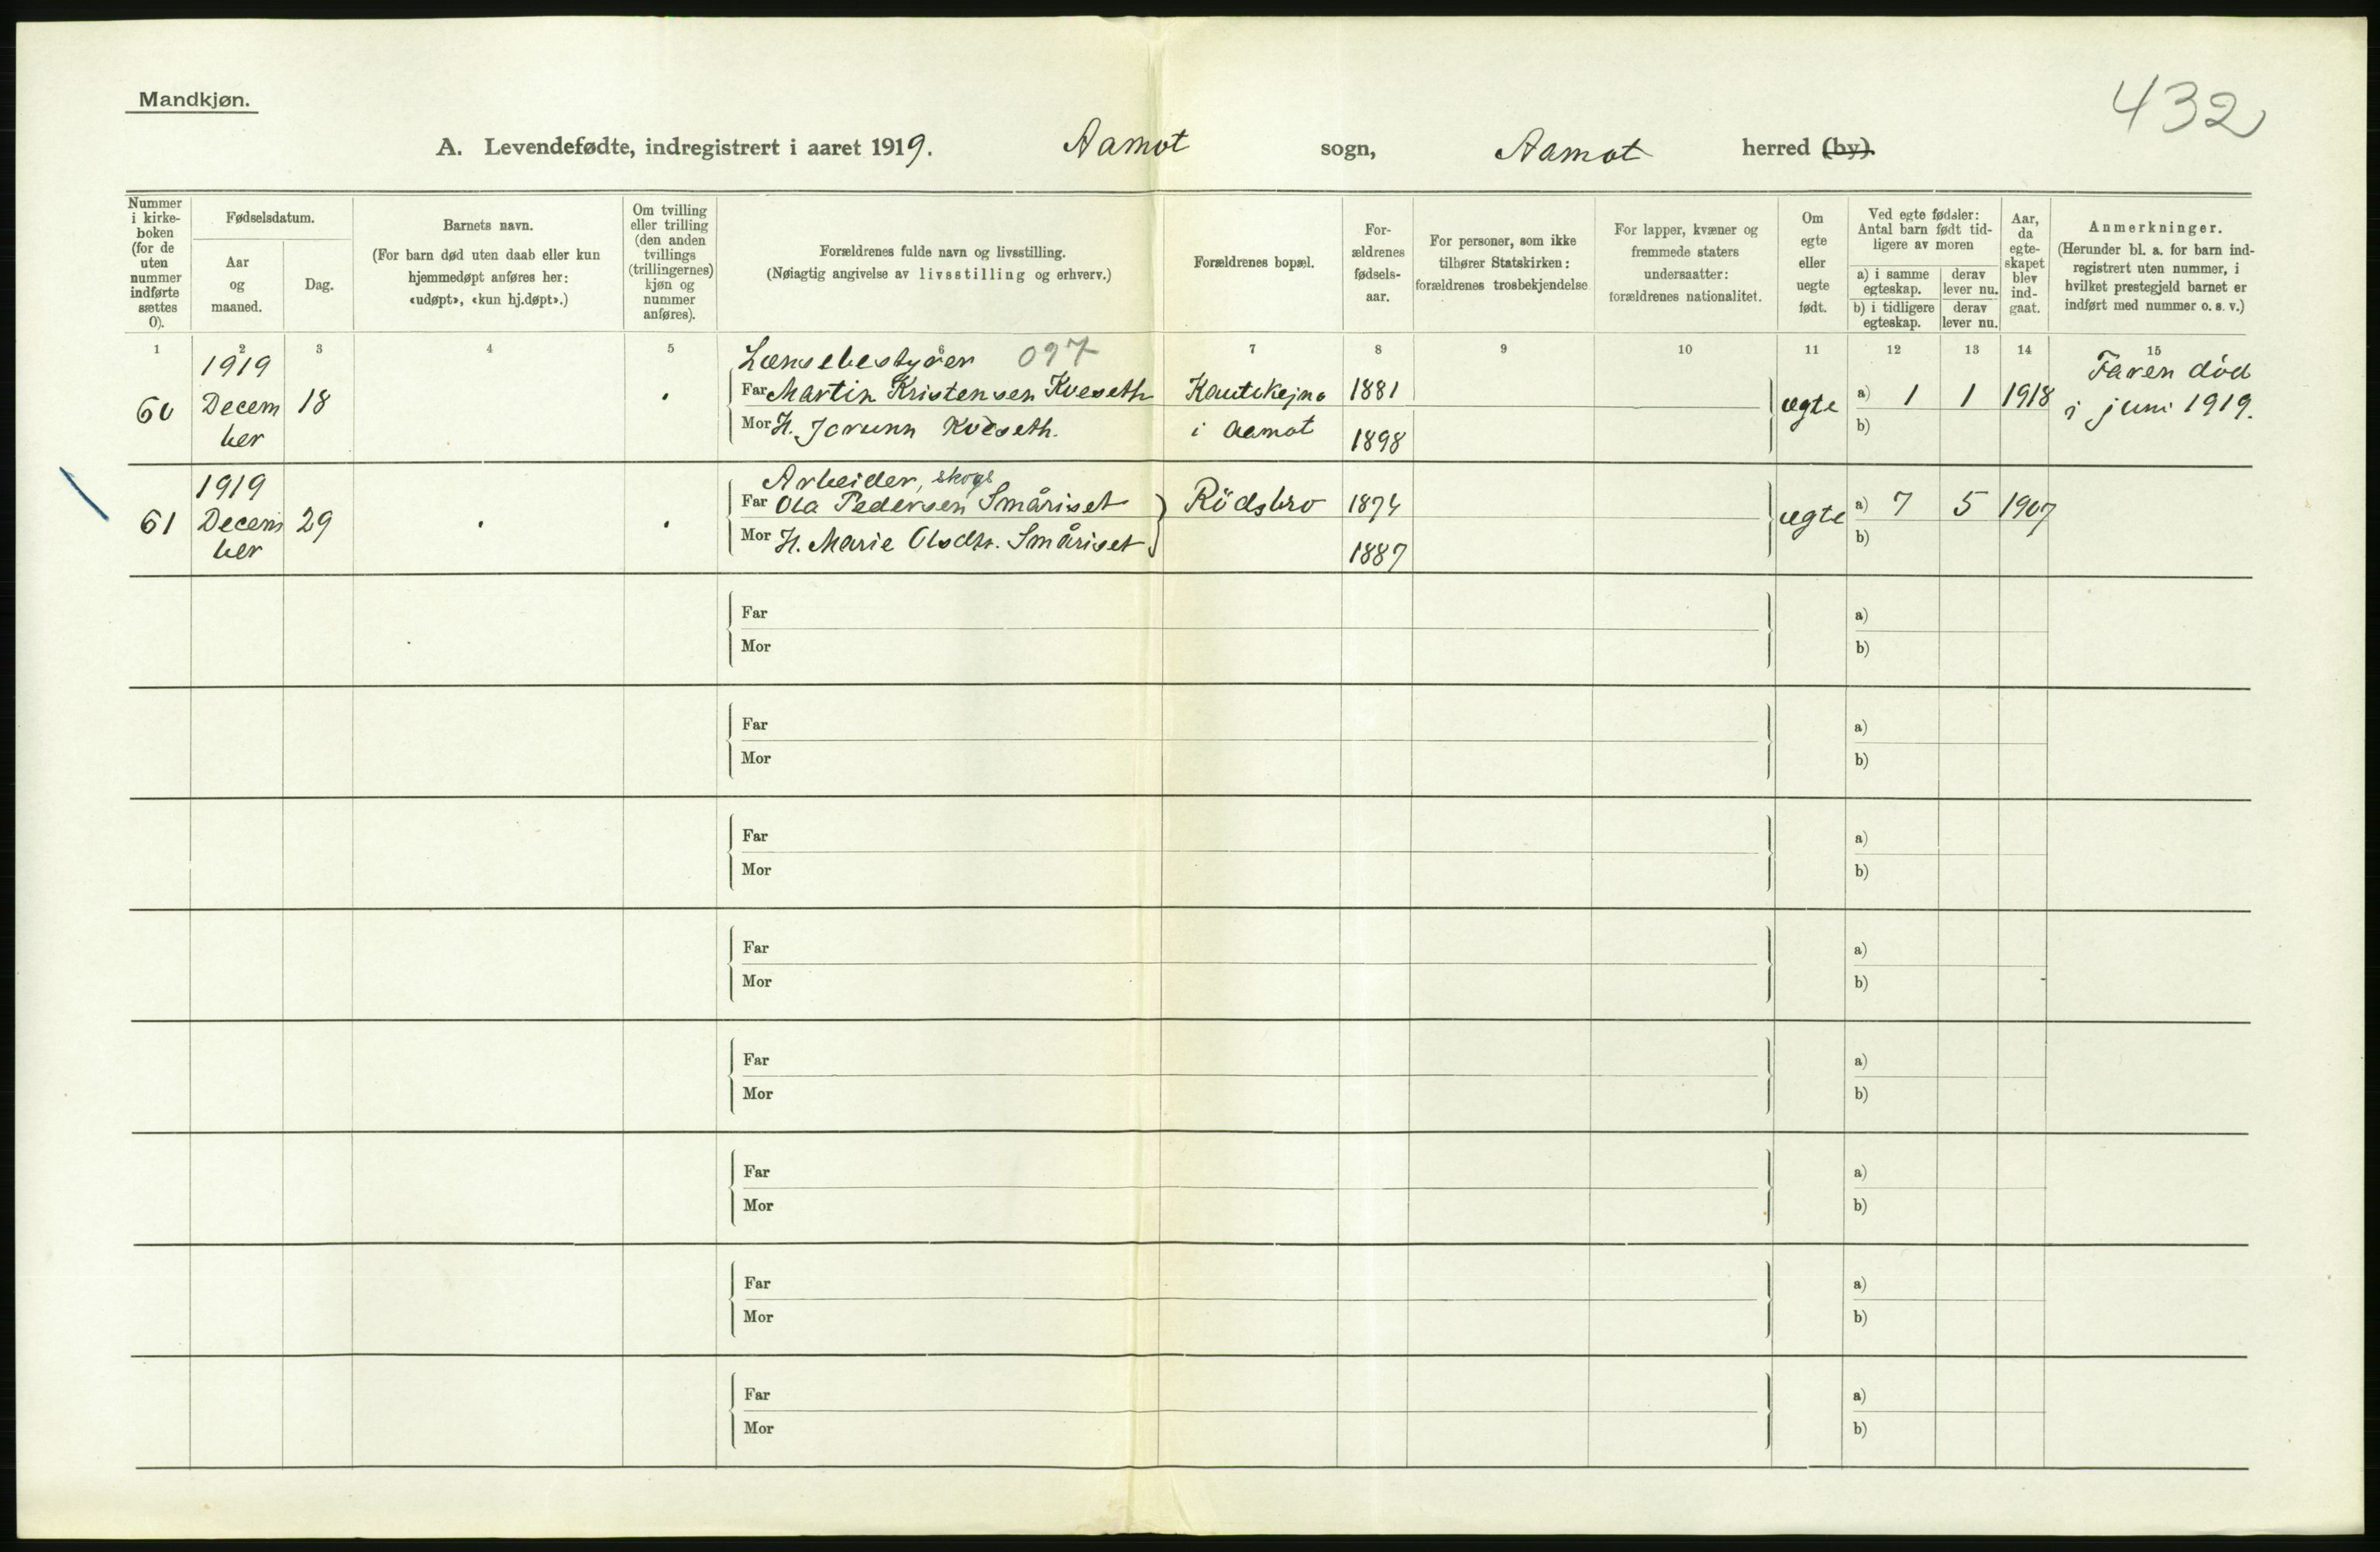 Mandkjøn.
432
A. Levendefødte, indregistrert i aaret 1919. Aamot sogn, Aamot herred (by).
Nummer i kirke-boken (for de uten nummer indførte sættes 0).
Fødselsdatum.
Aar og maaned.
Dag.
Barnets navn.
(For barn død uten daab eller kun hjemmedøpt anføres her: «udøpt», «kun hj.døpt».)
Om tvilling eller trilling (den anden tvillings (trillingernes) kjøn og nummer anføres).
Forældrenes fulde navn og livsstilling.
(Nøiagtig angivelse av livsstilling og erhverv.)
Forældrenes bopæl.
For-ældrenes fødsels-aar.
For personer, som ikke tilhører Statskirken: forældrenes trosbekjendelse
For lapper, kvæner og fremmede staters undersaatter: forældrenes nationalitet.
Om egte eller uegte født.
Ved egte fødsler: Antal barn født tid-ligere av moren
a) i samme egteskap.
derav lever nu.
b) i tidligere egteskap.
derav lever nu.
Aar, da egte-skapet blev ind-gaat.
Anmerkninger.
(Herunder bl. a. for barn ind-registrert uten nummer, i hvilket prestegjeld barnet er indført med nummer o. s. v.)
1 2 3 4 5 6 7 8 9 10 11 12 13 14 15
Lænsebestyrer 097
60 1919 Decem ber 18 Far Martin Kristensen Kveseth Kautokejno 1881 ægte a) 1 1 1918 Faren død
Mor H. Jorunn Kveseth. i Aamot 1898 b) i juni 1919.
Arbeider, skogs
61 1919 Decem ber 29 Far Ola Pedersen Småriset Rödsbro 1874 ægte a) 7 5 1907
Mor H. Marie Olsdtr. Småriset 1887 b)
Far a)
Mor b)
Far a)
Mor b)
Far a)
Mor b)
Far a)
Mor b)
Far a)
Mor b)
Far a)
Mor b)
Far a)
Mor b)
Far a)
Mor b)